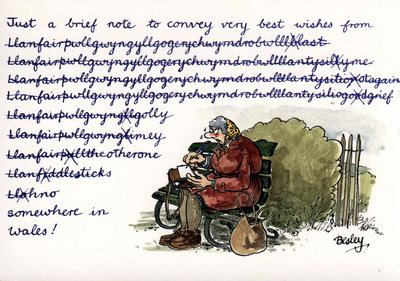 Just a brief note to convey very best wishes from
Llanfairpwllgwyngyllgogerychwymdrobwlllblast
Llanfairpwllgwyngyllgogerychwymdrobwlllllantysillyme
Llanfairpwllgwyngyllgogerychwymdrobwlllllantysitionotagain
Llanfairpwllgwyngyllgogerychwymdrobwlllllantysiliogoodgrief
Llanfairpwllgwyngollygolly
Llanfairpwllgwyngblimey
Llanfairpulltheotherone
Llanfiddlesticks
Llohno
somewhere in
Wales!
Besley